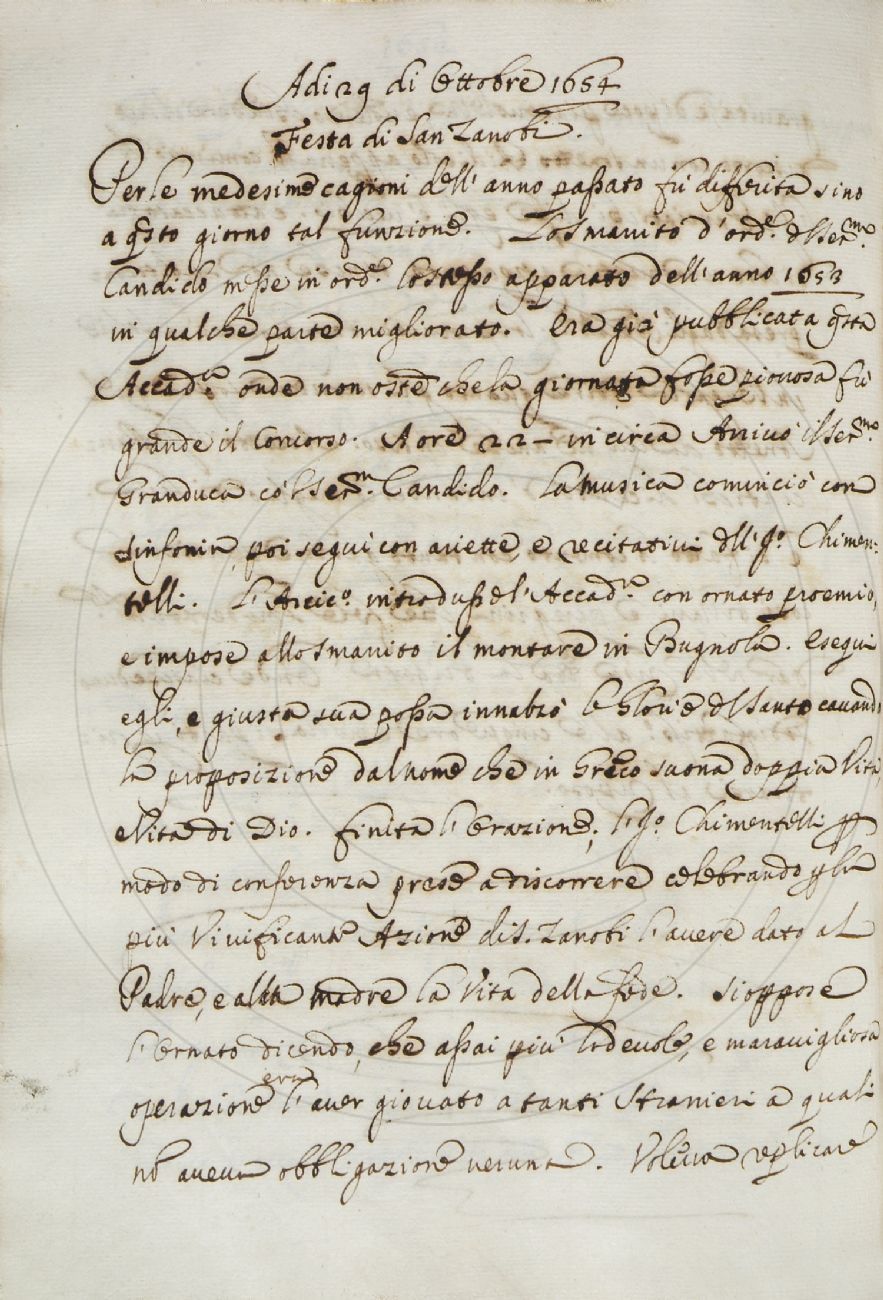 Adi 29 di Ottobre 1654
Festa di San Zanobi.
Per le medesime cagioni dell' anno passato fù differita sino
a q.sto giorno tal funzione. Lo Smarrito d' ord.e dl Ser.mo
Candido messe in ord.e lo stesso apparato dell' anno 1653
in qualche parte migliorato. Era già pubblicata q.sta
Accad.a onde non oste che la giornata fosse piovosa fù
grande il Concorso. A ore 22 – in circa Arrivò il Ser.mo
Granduca co 'l Ser.m Candido. La Musica cominciò con
sinfonia, poi seguì con ariette, e recitativi dll' Jo. Chimen:
telli. L' Arcic.o introdusse l' Accad.a con ornato proemio,
e impose allo Smarrito il montare in Bugnola. Eseguì
egli, e giusta sua possa innalzò le Glorie dl Santo cavando
la proposizione dal nome che in Greco suona doppia Vita,
e Vita di Dio. Finita l' Orazione, l' Jo. Chimentelli p
modo di conferenza prese a discorrere celebrando p la
più Vivificante Azione di S. Zanobi l' avere dato al
Padre, e alla madre la Vita della fede. Si oppose
l' Ornato dicendo, che assai più lodevole, e maravigliosa
operazione era l' aver giovato a tanti Stranieri a quali
nō aveva obbligazione veruna. Voleva replicare